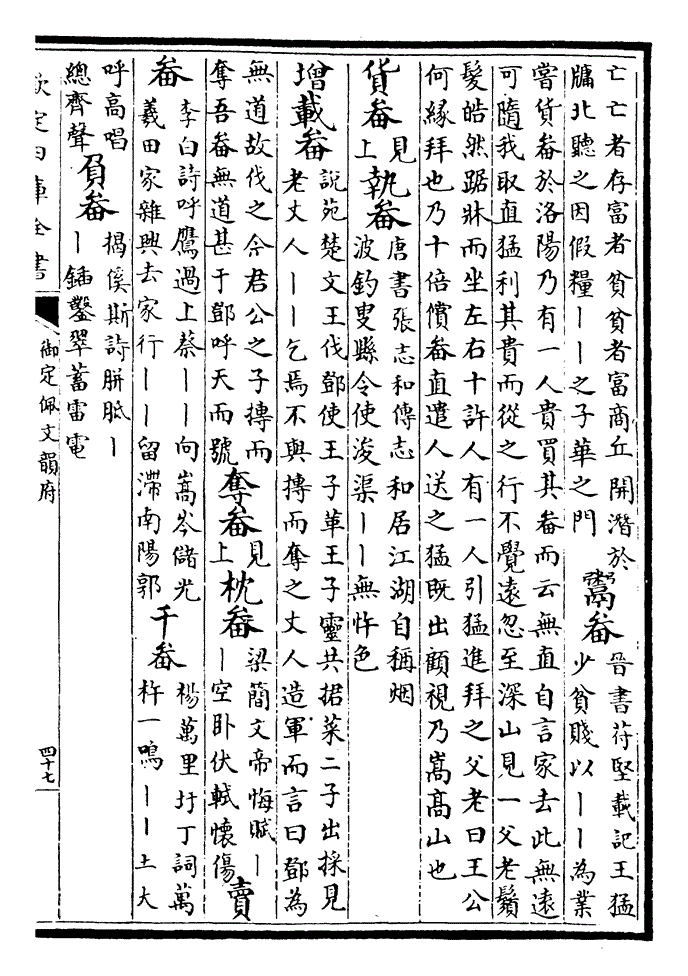 亡亡者存富者貧貧者富商丘開潛於
牖北聽之因假糧丨丨之子華之門
鬻畚
晉書苻堅載記王猛
少貧賤以丨丨為業
嘗貨畚於洛陽乃有一人貴買其畚而云無直自言家去此無遠
可隨我取直猛利其貴而從之行不覺遠忽至深山見一父老鬚
髮皓然踞牀而坐左右十許人有一人引猛進拜之父老曰王公
何緣拜也乃十倍償畚直遣人送之猛既出顧視乃嵩髙山也
貨畚
見
上
執畚
唐書張志和傳志和居江湖自稱烟
波釣叟縣令使浚渠丨丨無怍色
增載畚
說苑楚文王伐鄧使王子革王子靈共捃菜二子出採見
老丈人丨丨乞焉不與摶而奪之丈人造軍而言曰鄧為
無道故伐之今君公之子摶而
奪吾畚無道甚于鄧呼天而號
奪畚
見
上
枕畚
梁簡文帝悔賦丨
丨空卧伏軾懷傷
賣
畚
李白詩呼鷹過上蔡丨丨向嵩岑儲光
羲田家雜興去家行丨丨留滯南陽郭
千畚
楊萬里圩丁詞萬
杵一鳴丨丨土大
呼高唱
總齊聲
負畚
揭傒斯詩胼胝丨
丨鍤鑿翠蓄雷電
欽定四庫全書
御定佩文韻府
四十七